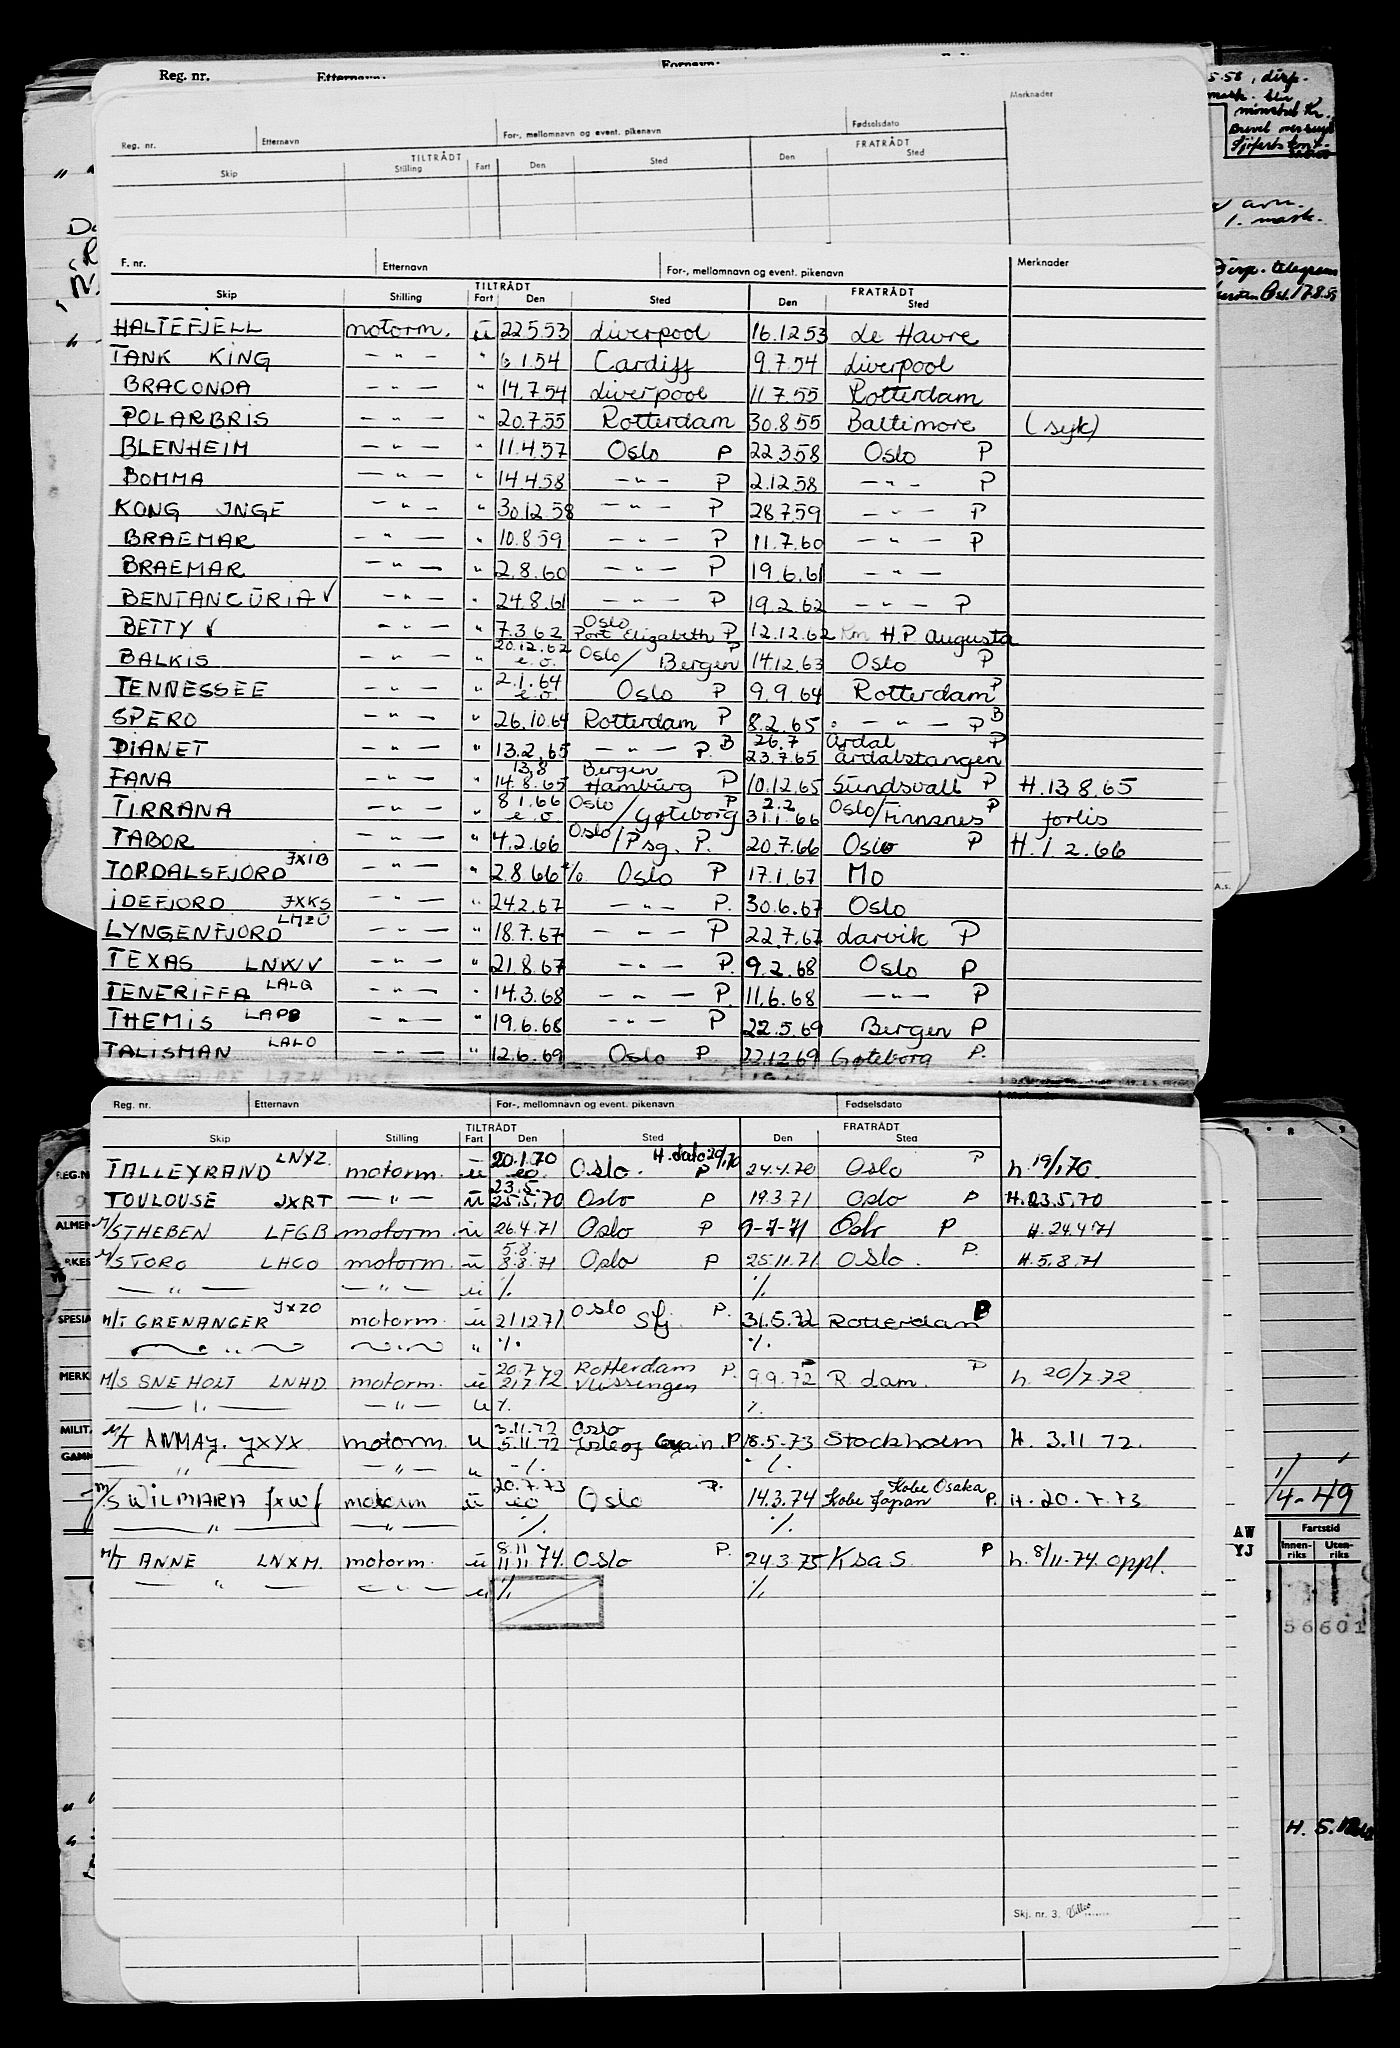 Reg. nr. Etternavn: Fornavn:
Merknader
Reg. nr. Etternavn For-, mellomnavn og event. pikenavn Fødselsdato
TILTRÅDT FRATRÅDT
Skip Stilling Fart Den Sted Den Sted
F. nr. Etternavn For-, mellomnavn og event. pikenavn Merknader
TILTRÅDT FRATRÅDT
Skip Stilling Fart Den Sted Den Sted
HALTEFJELL motorm. ü 22.5.53 Liverpool 16.12.53 Le Havre
TANK KING — " — " 6.1.54 Cardiff 9.7.54 Liverpool
BRACONDA — " — " 14.7.54 Liverpool 11.7.55 Rotterdam
POLARBRIS — " — " 20.7.55 Rotterdam 30.8.55 Baltimore (syk)
BLENHEIM — " — " 11.4.57 Oslo P 22.3.58 Oslo P
BOMMA — " — " 14.4.58 — " — P 2.12.58 — " — P
KONG INGE — " — " 30.12.58 — " — P 28.7.59 — " — P
BRAEMAR — " — " 10.8.59 — " — P 11.7.60 — " — P
BRAEMAR — " — " 2.8.60 — " — P 19.6.61 — " —
BENTANCURIA √ — " — " 24.8.61 — " — P 19.2.62 — " — P
BETTY √ — " — " 7.3.62 Oslo Port Elizabeth P 12.12.62 H.P Augusta
BALKIS — " — " 20.12.62 e.o. Oslo / Bergen P 14.12.63 Oslo P
TENNESSEE — " — " 2.1.64 e.o. Oslo P 9.9.64 Rotterdam P
SPERO — " — " 26.10.64 Rotterdam P 8.2.65 — " — P B
DIANET — " — " 13.2.65 — " — P. B 26.7 23.7.65 Årdal Årdalstangen P
FANA — " — " 13.8 14.8.65 Bergen Hamburg P 10.12.65 Sundsvall P H.13.8.65
TIRRANA — " — " 8.1.66 e.o Oslo / Gøteborg P 2.2 31.1.66 Oslo / Finnsnes P forlis
TABOR — " — " 4.2.66 Oslo / Psg. P. 20.7.66 Oslo P H.1.2.66
TORDALSFJORD JXIB — " — " 2.8.66 Oslo P 17.1.67 Mo
IDEFJORD JXKS — " — " 24.2.67 — " — P. 30.6.67 Oslo
LYNGENFJORD LMZU — " — " 18.7.67 — " — P 22.7.67 Larvik P
TEXAS LNWV — " — " 21.8.67 — " — P. 9.2.68 Oslo P
TENERIFFA LALQ — " — " 14.3.68 — " — P. 11.6.68 — " — P
THEMIS LAPB — " — " 19.6.68 — " — P 22.5.69 Bergen P
TALISMAN LALO — " — " 12.6.69 Oslo P. 22.12.69 Gøteborg P.
Reg. nr. Etternavn For-, mellomnavn og event. pikenavn Fødselsdato
TILTRÅDT FRATRÅDT
Skip Stilling Fart Den Sted Den Sted
TALLEYRAND LNYZ. motorm. ü 20.1.70 eo. Oslo. H. dato 20/1.70 P 24.4.70 Oslo P h. 19/1.70.
TOULOUSE JXRT — " — ü 23.5. 25.5.70 Oslo P 19.3.71 Oslo P H.23.5.70
M/S THEBEN LFGB motorm. ü 26.4.71 Oslo P 9-7-71 Oslo P H. 24.4.71
M/S TORO LHCO motorm. ü 5.8. 8.8.71 Oslo P 25.11.71 Oslo. P. H.5.8.71
— " — — " — ü ./. ./.
M/T GRENANGER JXZO motorm. ü 21.12.71 Oslo Sfj. P. 31.5.72 Rotterdam P
— " — — " — " ./. ./.
M/S SNEHOLT LNHD motorm. ü 20.7 21.7.72 Rotterdam Vlissingen P. 9.9.72 R.dam. P h. 20/7.72
— " — — " — ü ./. ./.
M/T ANMAJ. JXYX motorm. ü 3.11.72 5.11.72 Oslo Isle of Grain. P 18.5.73 Stockholm H. 3.11 72.
— " — — " — " ./. ./.
M/S WILMARA JXWJ motorm ü 20.7.73 eo Oslo P. 14.3.74 Kobe Osaka Kobe Japan P. H. 20.7.73
— " — — " — ./. ./.
M/T ANNE LNXM. motorm. ü 8.11 11.11 74. Oslo P. 24.3.75 KSAS. P h. 8/11-74. oppl.
— " — — " — ü ./. ./.
Skj. nr. 3.
5.58, disp.
mask.
1. mask.
A.s.
REG.N
ALMEN
SPESIA
MERK
MILITÆ
1/4-49
AW Fartstid
YJ Innen-riks Uten-riks
56601
H. 5.